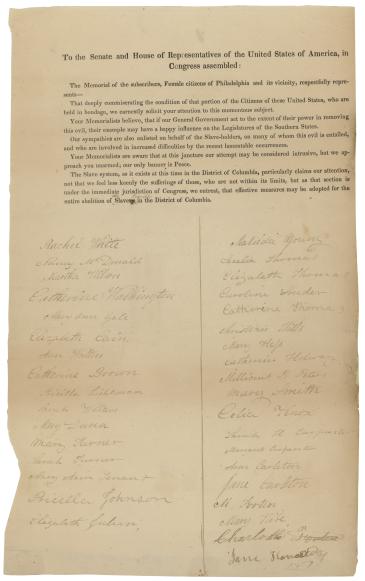 To the Senate and House of Representatives of the United States of America, in
Congress assembled:
The Memorial of the subscribers, Female citizens of Philadelphia and its vicinity, respectfully repre-
sents—
That deeply commiserating the condition of that portion of the Citizens of these United States, who are
held in bondage, we earnestly solicit your attention to this momentous subject.
Your Memorialists believe, that if our General Government act to the extent of their power in removing
this evil, their example may have a happy influence on the Legislatures of the Southern States.
Our sympathies are also enlisted on behalf of the Slave-holders, on many of whom this evil is entailed,
and who are involved in increased difficulties by the recent lamentable occurrences.
Your Memorialists are aware that at this juncture our attempt may be considered intrusive, but we ap-
proach you unarmed; our only banner is Peace.
The Slave system, as it exists at this time in the District of Columbia, particularly claims our attention,
not that we feel less keenly the sufferings of those, who are not within its limits, but as that section is
under the immediate jurisdiction of Congress, we entreat, that effective measures may be adopted for the
entire abolition of Slavery in the District of Columbia.
Rachel White
Nancy McDonald
Martha
Catherine Washington
Gale
Elizabeth Cain
Ann
Catherine Brown
Sarah
Mary
Mary Turner
Sarah Turner
Mary Ann
Priscilla Johnson
Elizabeth
Matilda
Amelia Thomas
Elizabeth Thomas
Caroline
Catherine Thomas
Christiana
Mary Hess
Catherine
Millicent
Mary Smith
Celia
Sarah A Carpenter
Margaret Carpenter
Ann Carlton
Jane Carlton
M. Forten
Mary
Charlotte
Jane